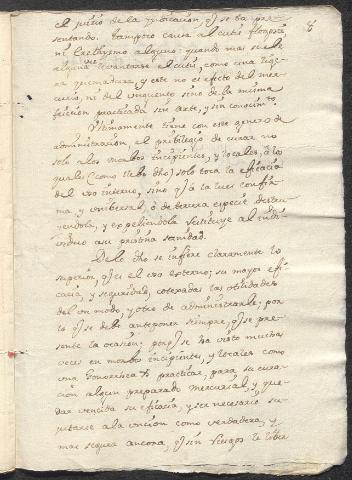 8
el juicio de la indicacion, q̃ se ba pre-
sentando. tampoco causa al cutis flogosi
ni Erethysmo alguno: quando mas suele
alguna vez levantarse el cutis, como una lige-
ra quemadura, y este no es efecto del mer-
curio, ni del unguento sino de la misma
friccion practicada sin arte, y sin conocimto.
Ultimamente tiene con este genero de
administracion, el privilegio de curar no
solo a los morbos incipientes, y locales, à los
quales (como llebo dho) solo toca la eficacia
del uso interno, sino q̃ à la lues confir-
ma, y universal, ò de tercera especie destru-
yendola, y expeliendola restituye al indi-
viduo a su pristina sanidad.
De lo dho se infiere claramente lo
superior, q̃ es el uso externo; su mayor efi-
cacia, y seguridad, cotexadas las utilidades
del un modo, y otro de administrarle; por
lo q̃ se debe anteponer siempre, q̃ se pre-
sente la ocasion; porq̃ se ha visto muchas
veces en morbos incipientes, y locales como
una Gonorrhea &c. practicar, para su cura-
cion algun preparado mercurial, y que-
dar vencida su eficacia, y ser necesario su-
jetarse a la uncion como verdadera, y
mas segura ancora, q̃ sin riesgos le liber